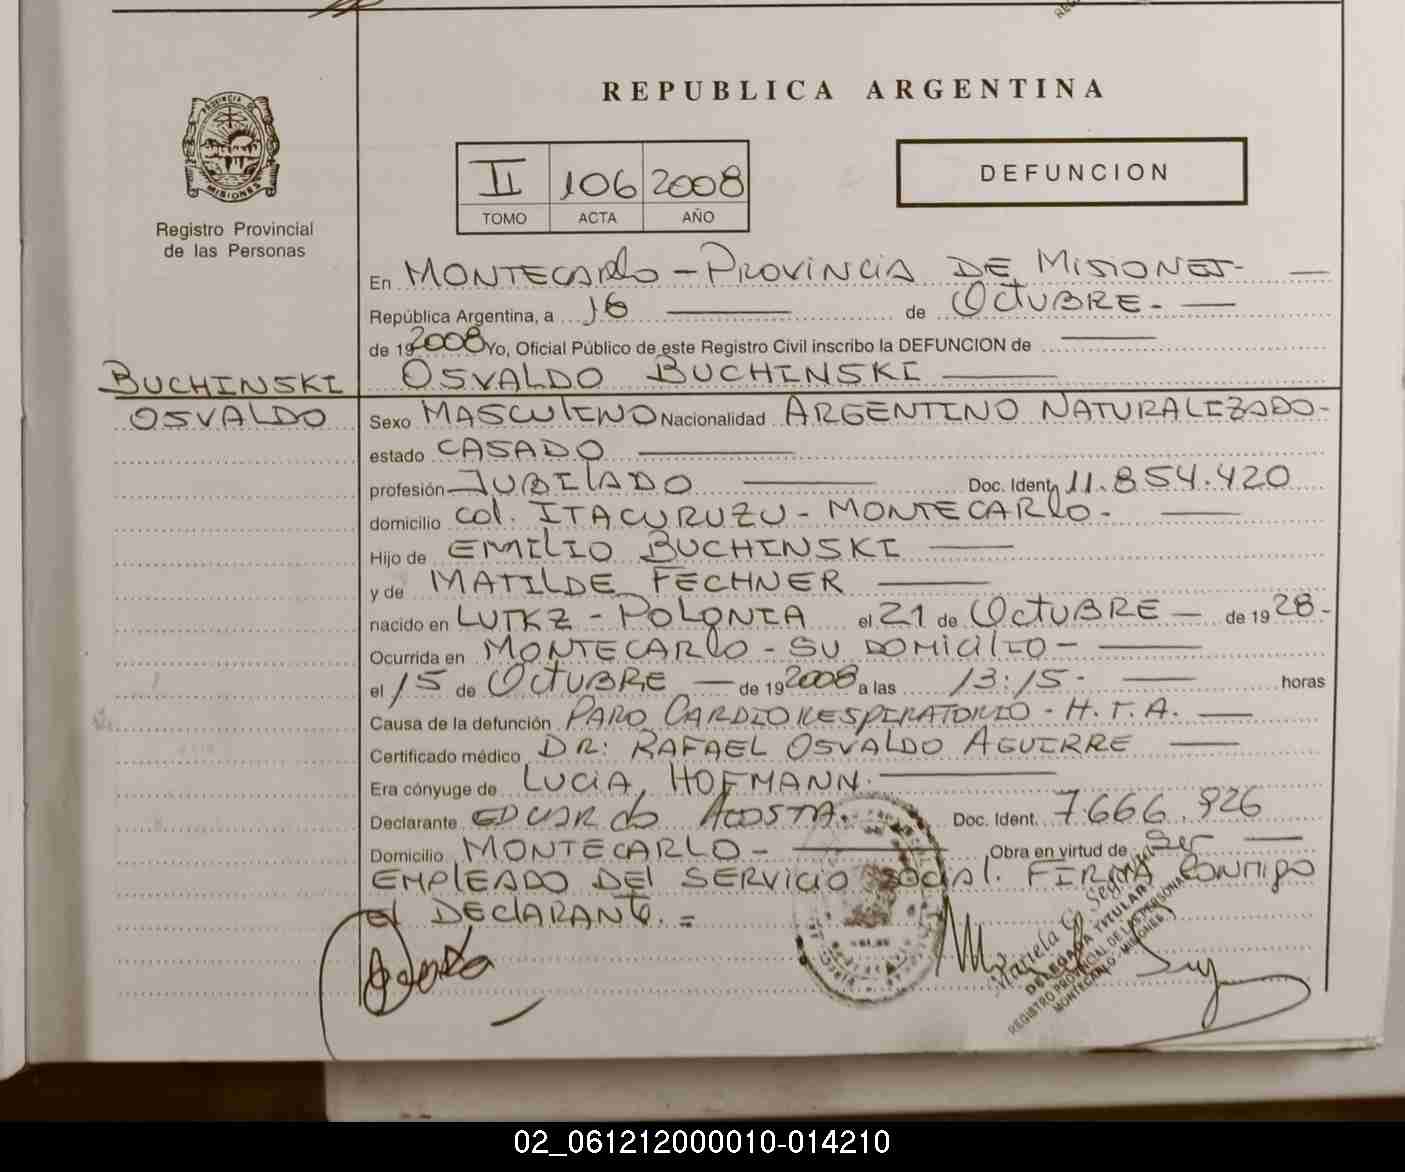 REPUBLICA ARGENTINA
PROVINCIA DE
MISIONES
Registro Provincial
de las Personas
II 106 2008
TOMO ACTA AÑO
DEFUNCION
En MONTECARLO - PROVINCIA DE MISIONES -
República Argentina, a 16 de OCTUBRE -
de 19 2008 Yo, Oficial Público de este Registro Civil inscribo la DEFUNCION de
BUCHINSKI OSVALDO BUCHINSKI
OSVALDO Sexo MASCULINO Nacionalidad ARGENTINO NATURALIZADO -
estado CASADO
profesión JUBILADO Doc. Ident. 11.854.420
domicilio COL. ITACURUZU - MONTECARLO -
Hijo de EMILIO BUCHINSKI
y de MATILDE FECHNER
nacido en LUTKZ - POLONIA el 21 de OCTUBRE - de 19 28 -
Ocurrida en MONTECARLO - SU DOMICILIO -
el 15 de OCTUBRE - de 19 2008 a las 13:15 - horas
Causa de la defunción PARO CARDIORESPIRATORIO - H.T.A.
Certificado médico DR: RAFAEL OSVALDO AGUIRRE
Era cónyuge de LUCIA HOFMANN.
Declarante EDUARDO ACOSTA. Doc. Ident. 7.666.926
Domicilio MONTECARLO - Obra en virtud de Ser
EMPLEADO DEL SERVICIO SOCIAL. FIRMA CONMIGO
el DECLARANTE. =
Mariela G.
DELEGADA TITULAR
REGISTRO PROVINCIAL DE LAS PERSONAS
MONTECARLO - MISIONES
02_061212000010-014210